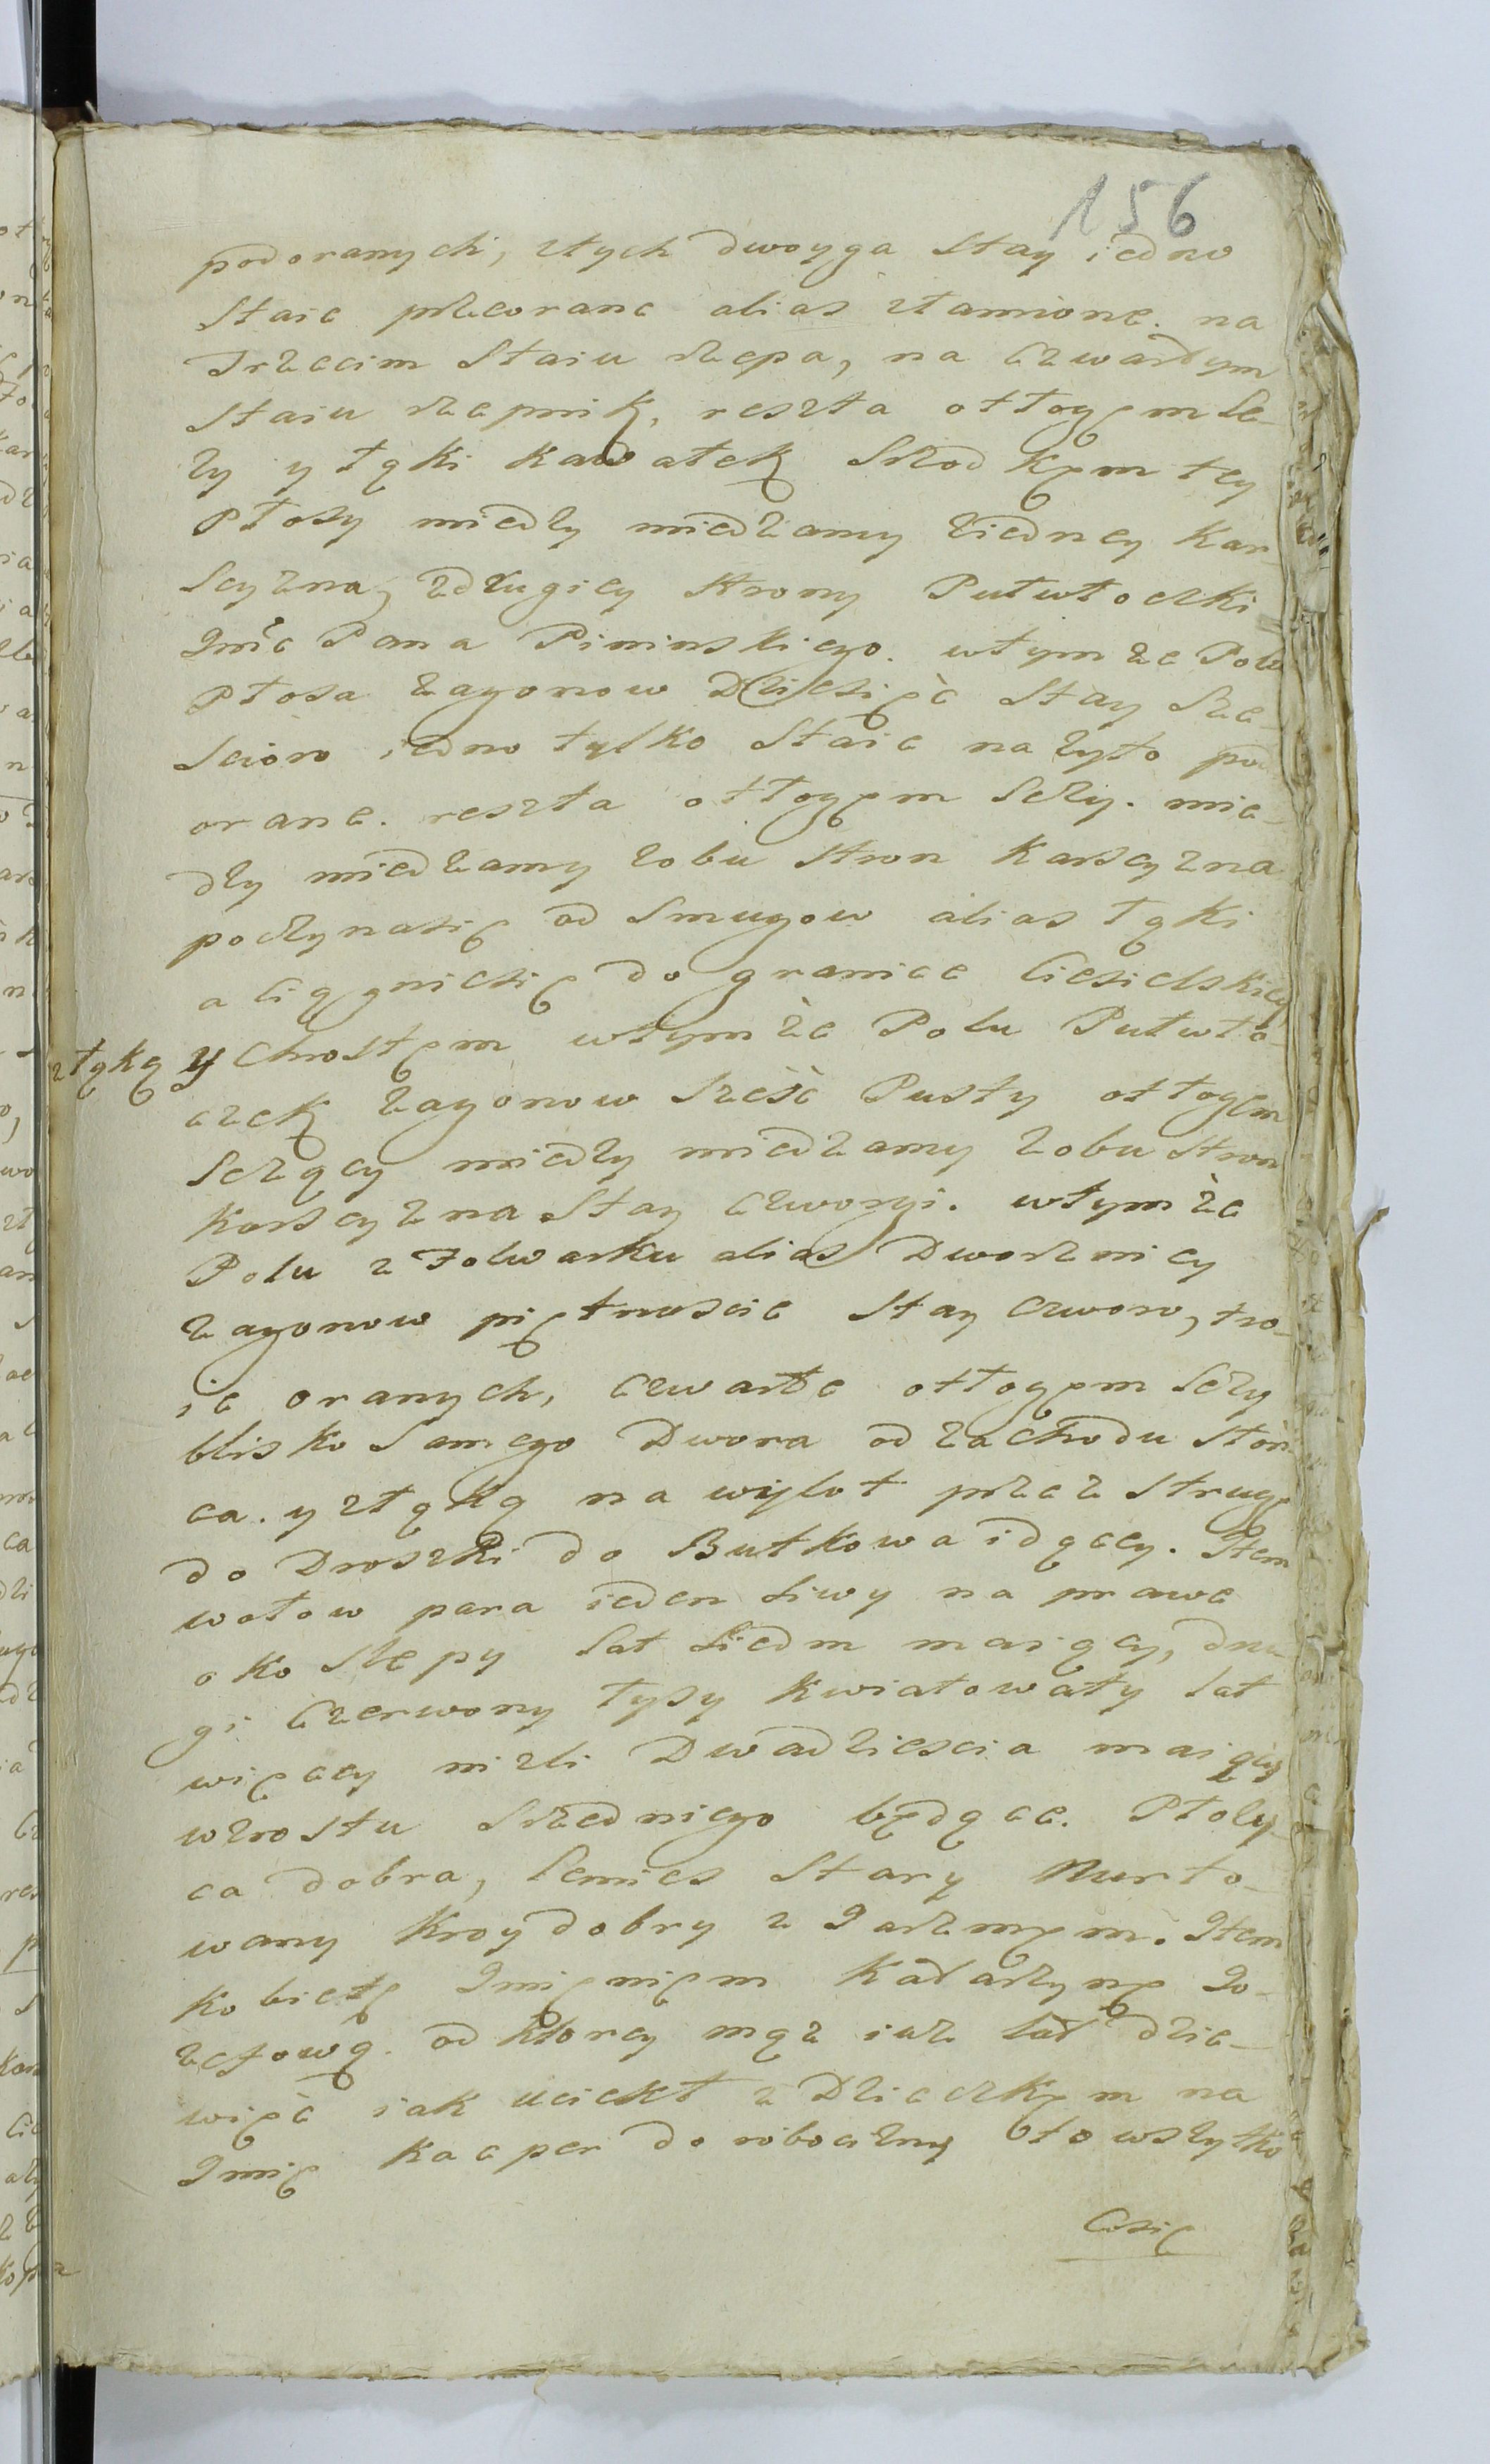 156
podoranych, ztych dwoyga Stay iedno
Staie przeorane alias złamione. na
Trzecim Staiu rzepa, na czwartym
Staiu rzepnik, reszta ottogęm le-
zy y łąki kawałek Srzodkęm tey
Płosy miedzy miedzamy ziedney Kar-
scyzna, zdrugiey strony Putwłoczki
Jmci Pana Pininskiego. wtymze Polu
Płosa zagonow Dziesięć Stay Sze-
scioro iedno tylko Staie na zyto po-
orane. reszta ottogęm lezy. mie-
dzy miedzamy zobu stron Karscyzna
poczynasię od Smugow alias łąki
a ciągniesię do granice Ciesielskiey
złąką y chrostęm wtymże Polu Putwło-
czek zagonow Sześć Pusty ottogęm
lezący miedzy miedzamy zobu stron
Karscyzna Stay czworgi. wtymże
Polu z Folwarku alias Dworznicy
zagonow piętnascie Stay czworo, tro-
ie oranych, czwarte ottogęm lezy
blisko Samego Dwora od zachodu słoń-
ca. y złąką na wylot przez Strugę
do Droszki do Butkowa idącey. Item
wołow para ieden Siwy na prawe
oko Slepy lat Siedm maiący, dru-
gi czerwony łysy kwiatowaty lat
więcey nizli Dwadziescia maiący
wzrostu Srzedniego będące. Płozy-
ca dobra, lemies Stary Nurto-
wany Kroy dobry z Jarzmęm. Item
kobietę Jmięnięm Katarzynę Jo-
zefową. od ktorey mąz iuz lat dzie-
więć iak uciekł z Dzieczkęm na
Jmię Kacper do robocizny to wszytko
Cosię